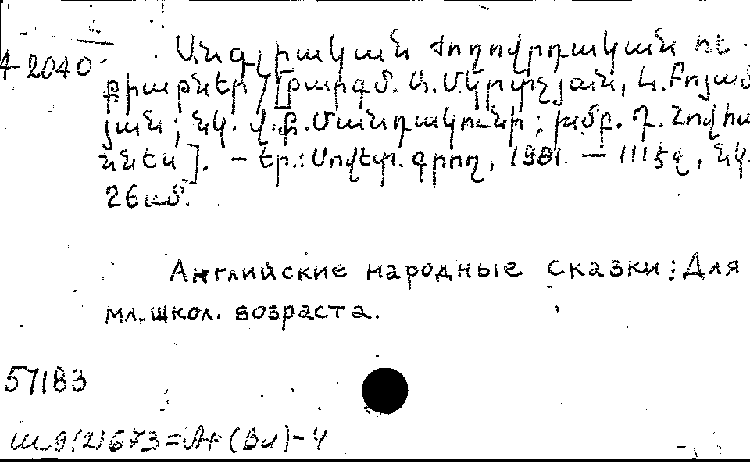 4-2040 Անգլիական ժողովրդական հե-
քիաթներ / [Թարգմ. Ա. Մկրտչյան, Ն.
յան; նկ. Վ. Ք. Մանդակունի; խմբ. Դ. Հովհա
ննես]. – Եր.: Սովետ. գրող, 1981. – 111էջ, նկ.
26սմ.
Английские народные сказки: Для
мл. школ. возраста.
57183